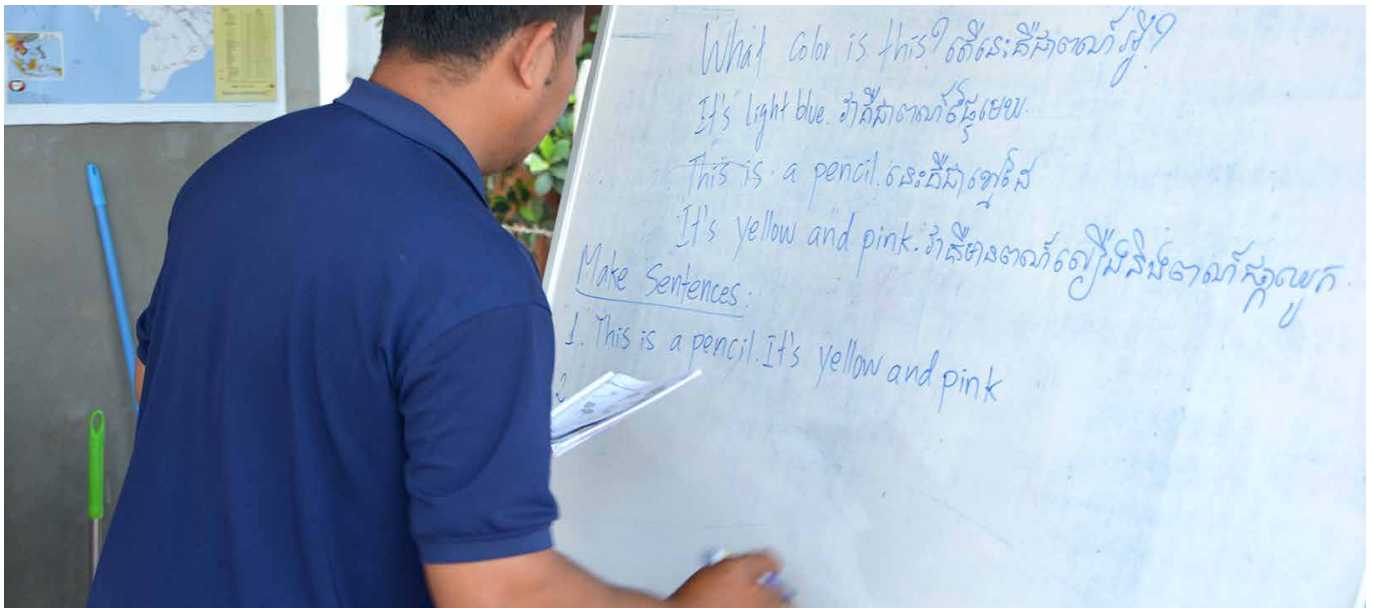 What color is this? តើនេះគឺជាពណ៌អ្វី?
It's light blue. វាគឺជាពណ៌ផ្ទៃមេឃ.
This is a pencil. នេះគឺជាខ្មៅដៃ
It's yellow and pink. វាគឺមានពណ៌លឿងនិងពណ៌ផ្កាឈូក.
Make Sentences:
1. This is a pencil. It's yellow and pink
2